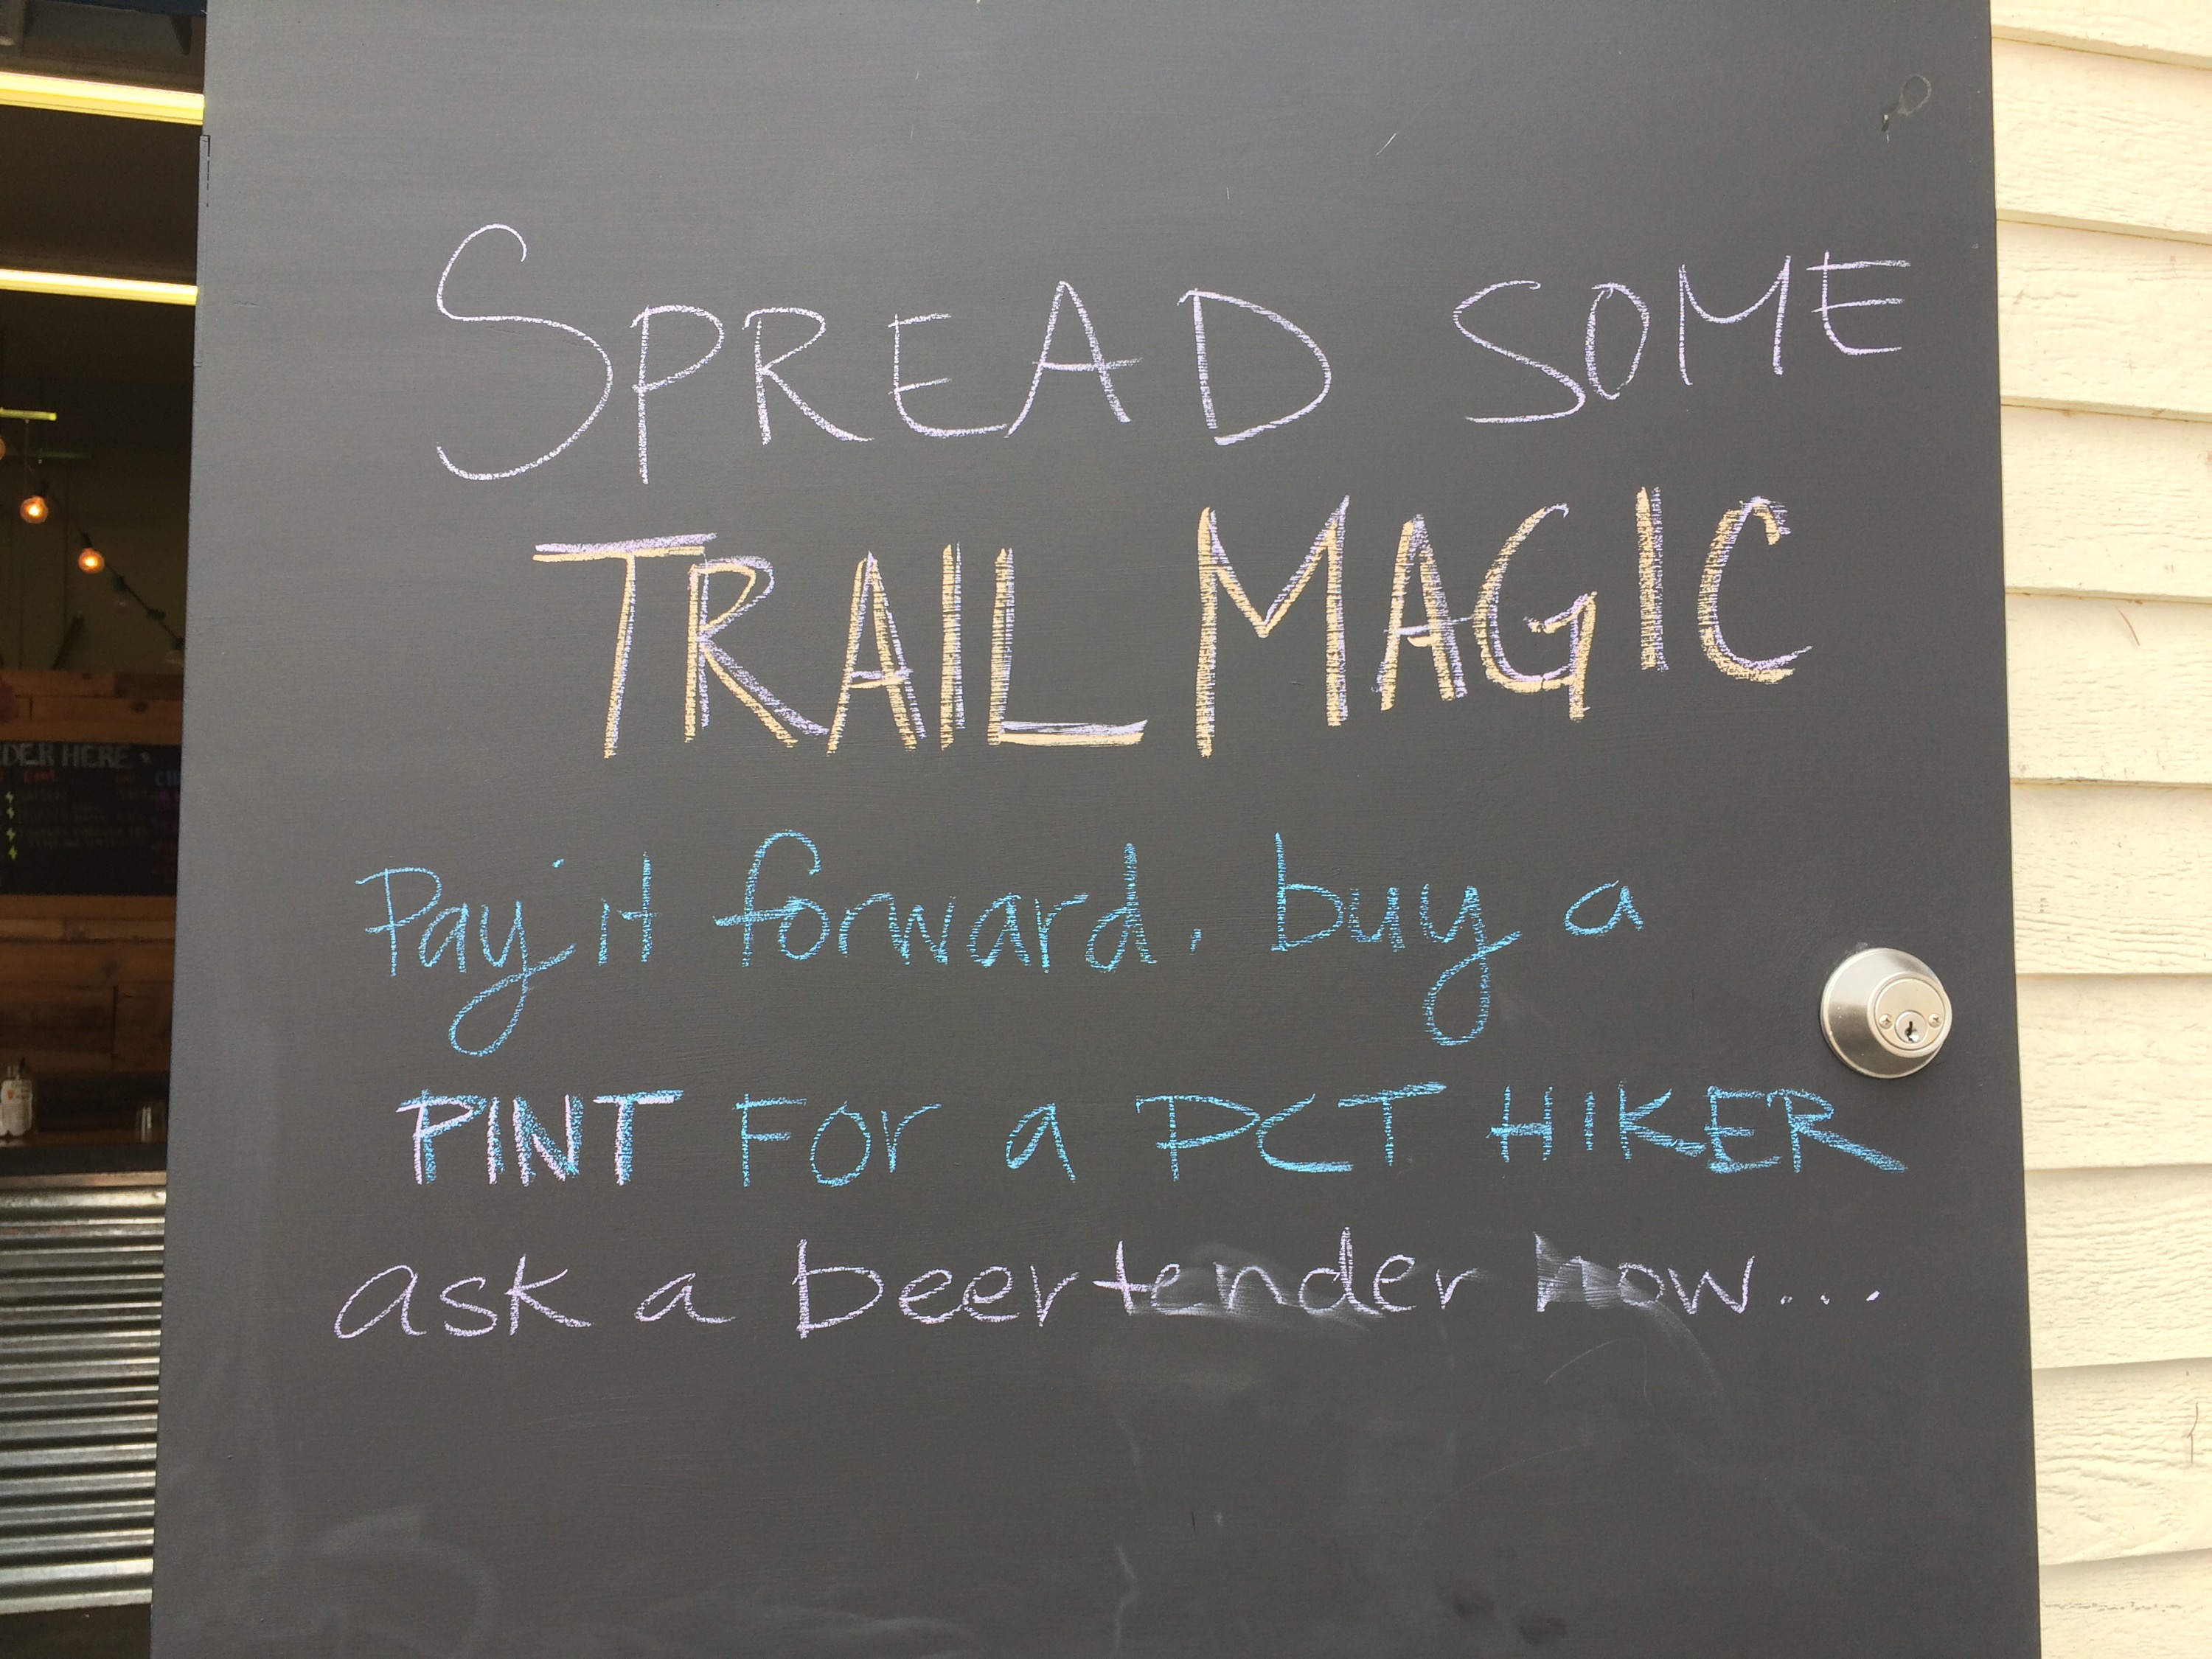 SPREAD SOME
TRAIL MAGIC
Pay it forward, buy a
PINT FOR a PCT HIKER
ask a beertender how....
DER HERE